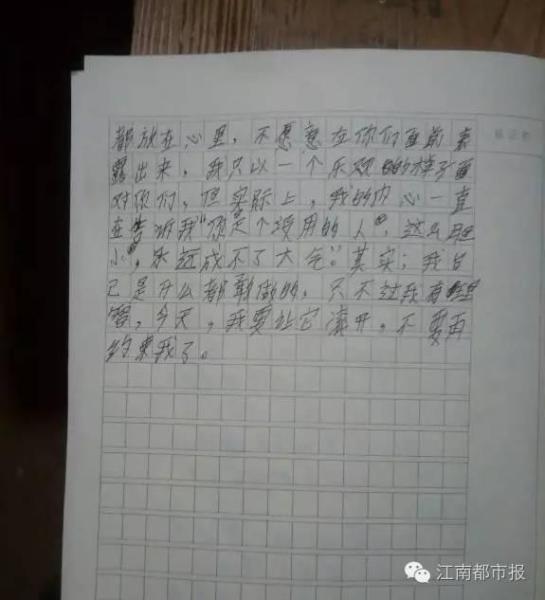 都放在心里，不愿意在你们面前表
露出来，我只以一个乐观的样子面
对你们，但实际上，我的内心一直
在告诉我“你是个没用的人”，这么胆
小，永远成不了大气。”其实；我自
己是什么都敢做的，只不过我有
，今天，我要让它离开，不要再
约束我了。
江南都市报